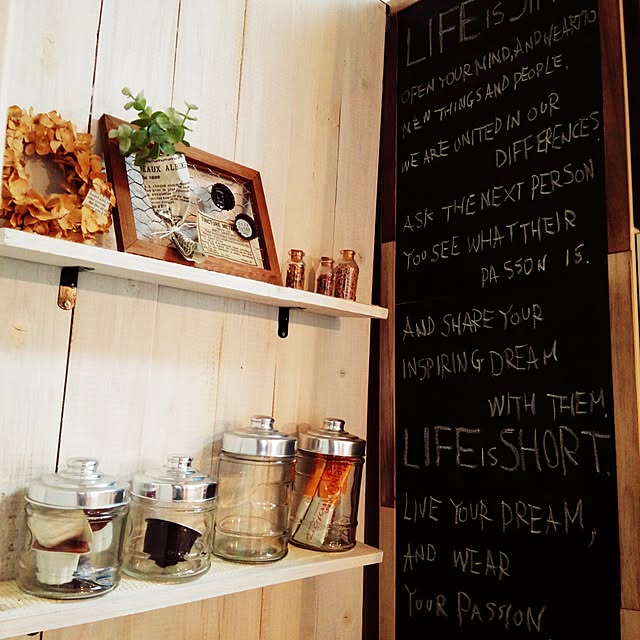 LIFE IS SIM
OPEN YOUR MIND, AND HEART TO
NEW THINGS AND PEOPLE,
WE ARE UNITED IN OUR
DIFFERENCES.
ASK THE NEXT PERSON
YOU SEE WHAT THEIR
PASSON IS.
AND SHARE YOUR
INSPIRING DREAM
WITH THEM.
LIFE IS SHORT.
LIVE YOUR DREAM,
AND WEAR
YOUR PASSION